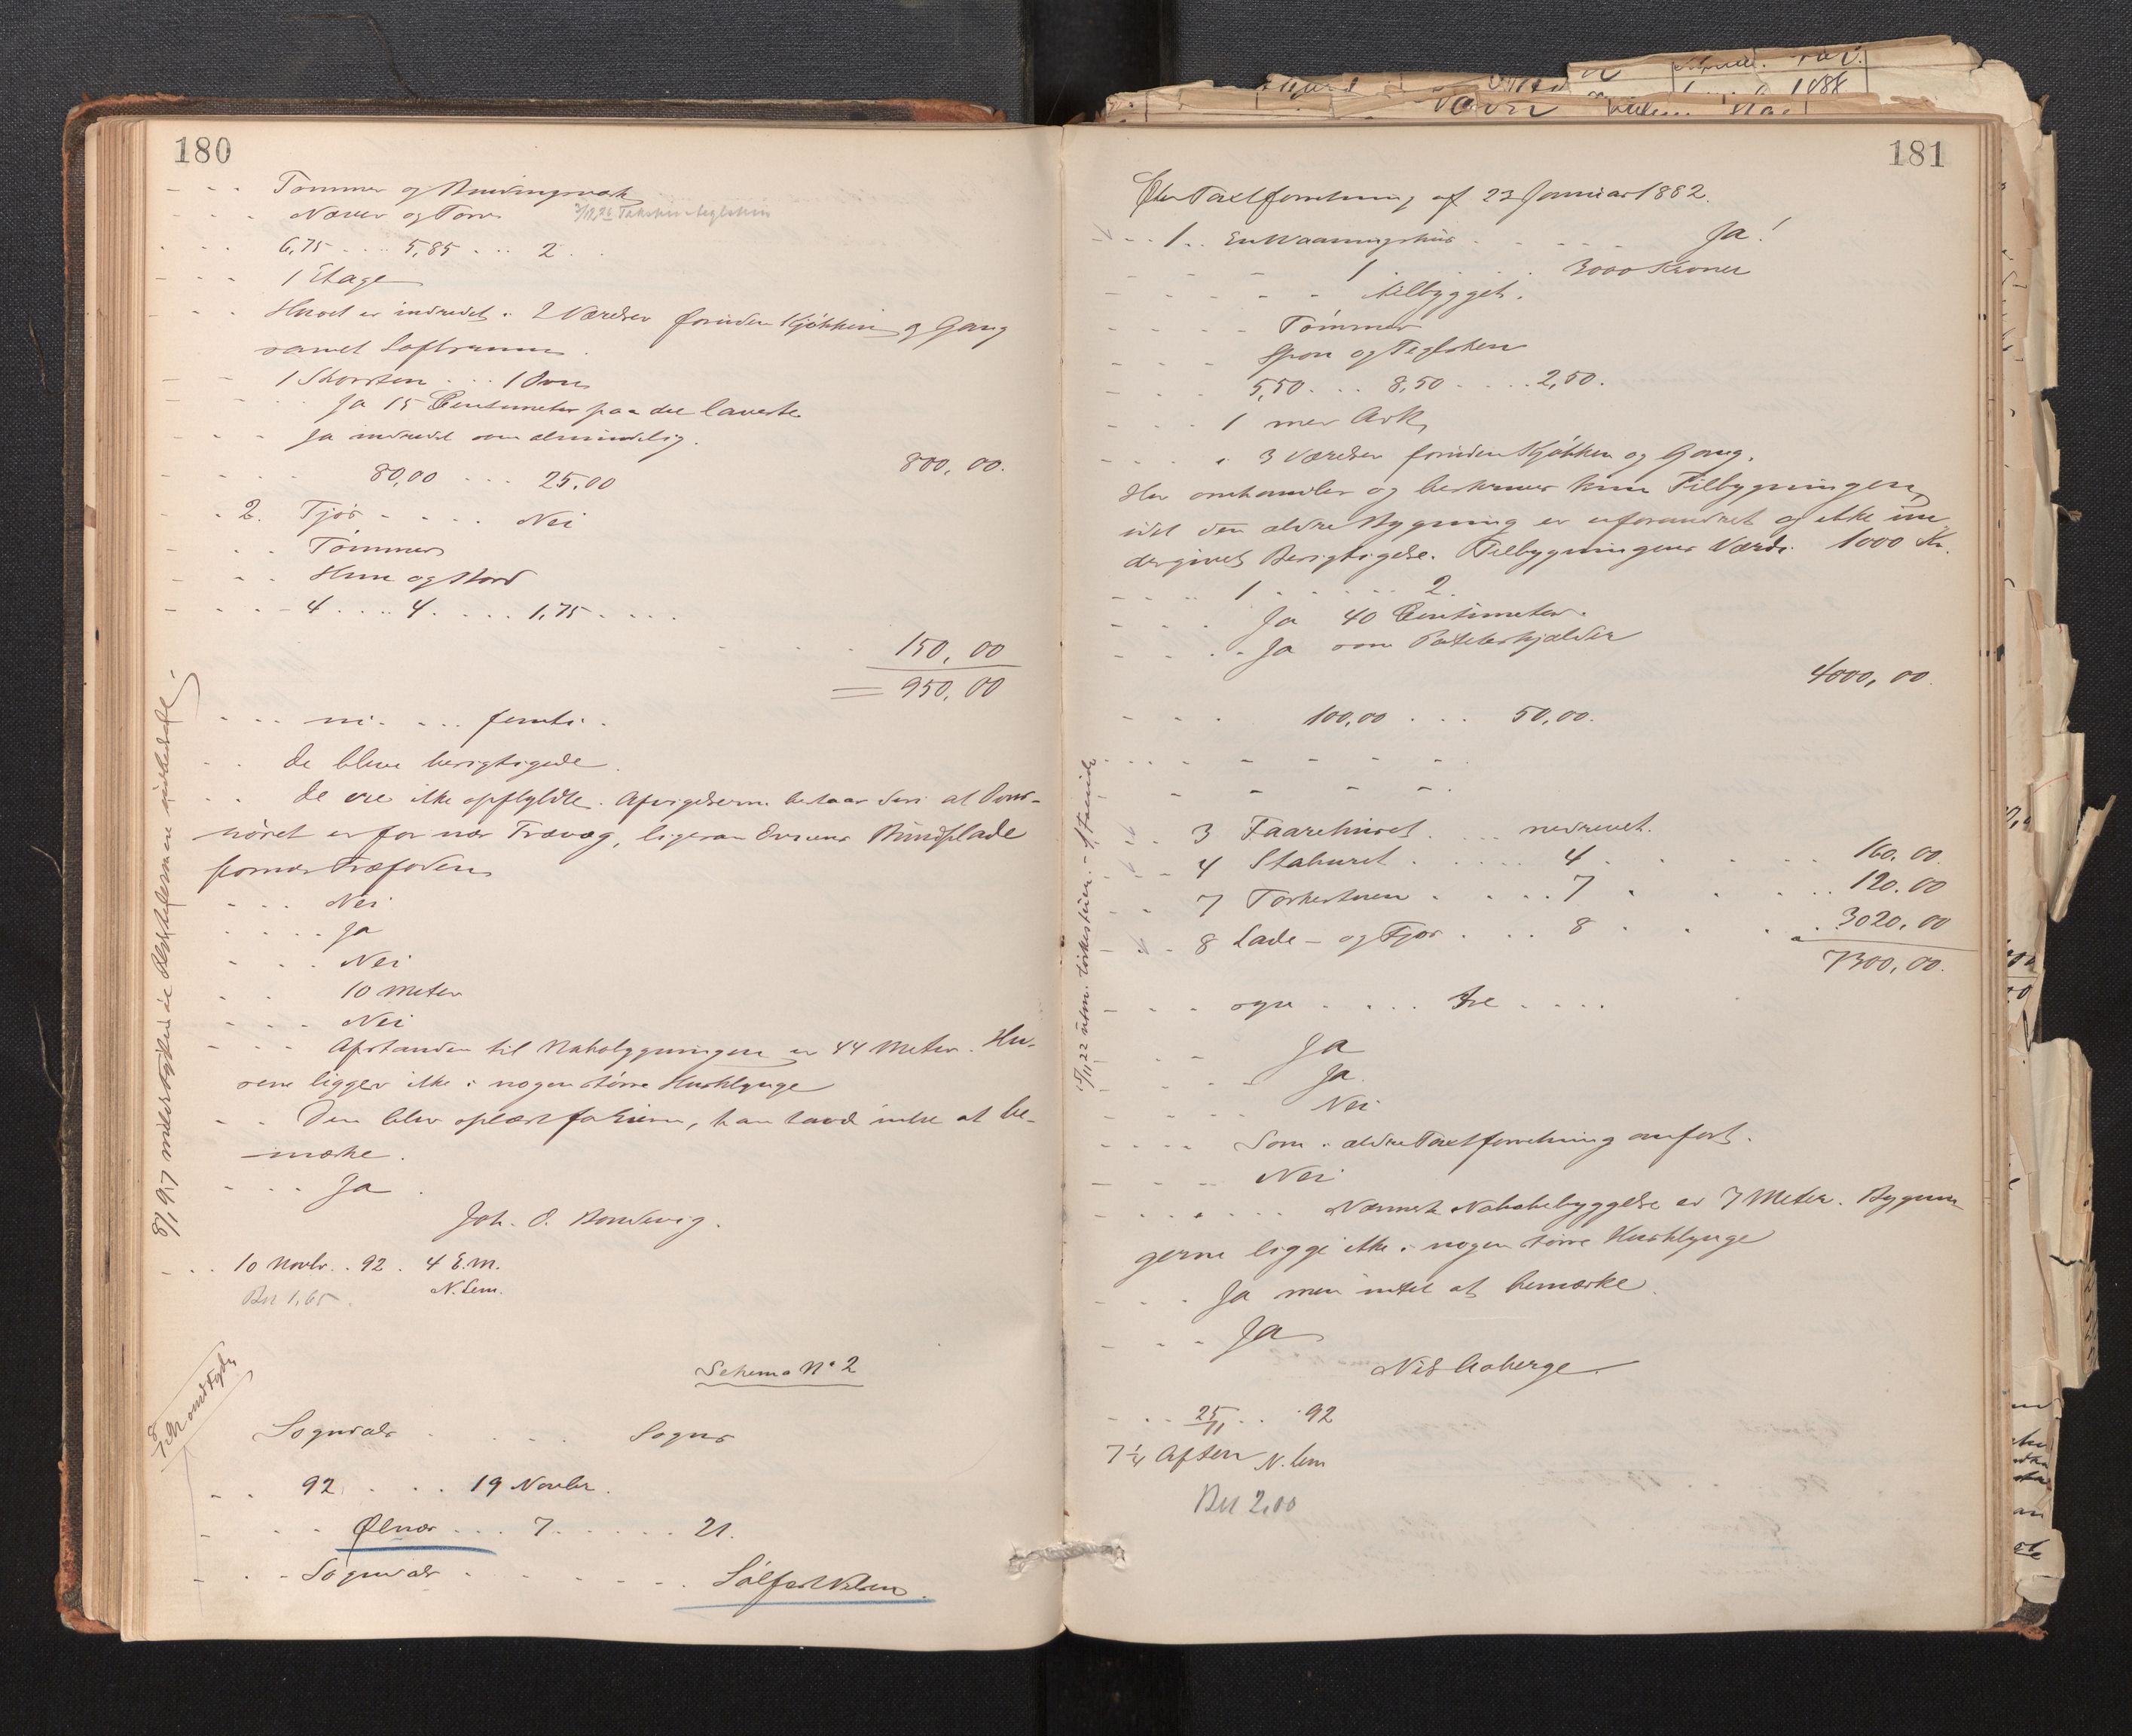 180
- - - Tømmer og Bindingsværk
- - - Næver og Torv
- - - 6,75 . . . 5,85 . . . 2 . .
- - - 1 Etage
- - - Huset er indredet i 2 Værelser foruden Kjøkken og Gang
samt Loftsrum .
- - 1 Skorsten . . . 1 Ovn
Ja 15 Centimeter paa det laveste
- - - Ja indredet som almindelig .
- - - 80,00 . . . 25.00 800,00.
- 2. Fjøs - - - . Nei
- - Tømmer
- - Hun og Bord
- - - 4 . . . . 4 . . . . 1,75 . . . .
- - - 150,00
= 950,00
- - - ni - . . . femti .
- - de bleve berigtigede .
- - de ere ikke opfyldte . Afvigelserne bestaar deri at Ovns-
røret er for nær Trævæg, ligesaa Ovnens Bundplade
for nær Træfoden
- - - Nei
- - - - Ja
- - - Nei
- - 10 Meter
- - - Nei
- - - Afstanden til Nabobygningen er 44 Meter . Hu-
sene ligger ikke i nogen større Husklynge
- - Den blev oplæst for Eieren, han havde intet at be-
mærke .
- - - Ja .
Joh. O. Bondevig .
- . . 10 Novbr. . 92 . 4 E.m.
N. Lem.
Bet 1,65 .
Schema No 2
Sogndals . . . . Sogns
- - 92 . . . . 19 Novbr .
- - - Ølnæs . . . 7 . . . . . 21 .
- - - Sogndals . - - - - Sølfest Nilsen .
181
Efter Taxtforretning af 23 Januar 1882.
- - - 1 . . En Vaaningshus . . - - . Ja !
- - - - 1 . . . . 3000 Kroner
- - - - - - tilbygget .
- - - - Tømmer
- - - Spon og Teglsten
- - - 5,50 . . . 8,50 . . . . 2,50 .
- - - 1 med Ark
- - - . i 3 Værelser foruden Kjøkken og Gang .
Her omhandles og beskrives kun Tilbygningen
idet den ældre Bygning er uforandret og ikke un-
dergivet Berigtigelse . Tilbygningens Værdi 1000 Kr.
- - - - 1 . . . . . . 2 .
- - - . Ja 40 Centimeter .
- - . . - Ja som Potetkjælder
4000,00 .
- - - 100,00 . . . 50,00 .
. . . - - - - - .
- - - - .
- - 3 Faarehuset . . . . nedrevet .
- - - 4 Staburet . . . . . 4 . . . . 160,00 .
- - 7 Tørkestuen . . . . 7 . . . . . 120.00
- - - 8 Lade - og Fjøs . . . . 8 . . . . 3020,00
7300,00.
- - - - syv . . . . tre . . . .
- - - Ja
- - - - Ja .
- - - - Nei
- - - - Som i ældre Taxtforretning anført .
- - - - Nei
- - - - - . . Nærmeste Nabobebyggelse er 7 Meter . Bygnin-
gerne ligge ikke i nogen større Husklynge
- - - . Ja men intet at bemærke .
- - - Ja
Nils Aaberge .
- . . 25/11 . . 92
7 1/4 Aften N. Lem
Bet 2,00